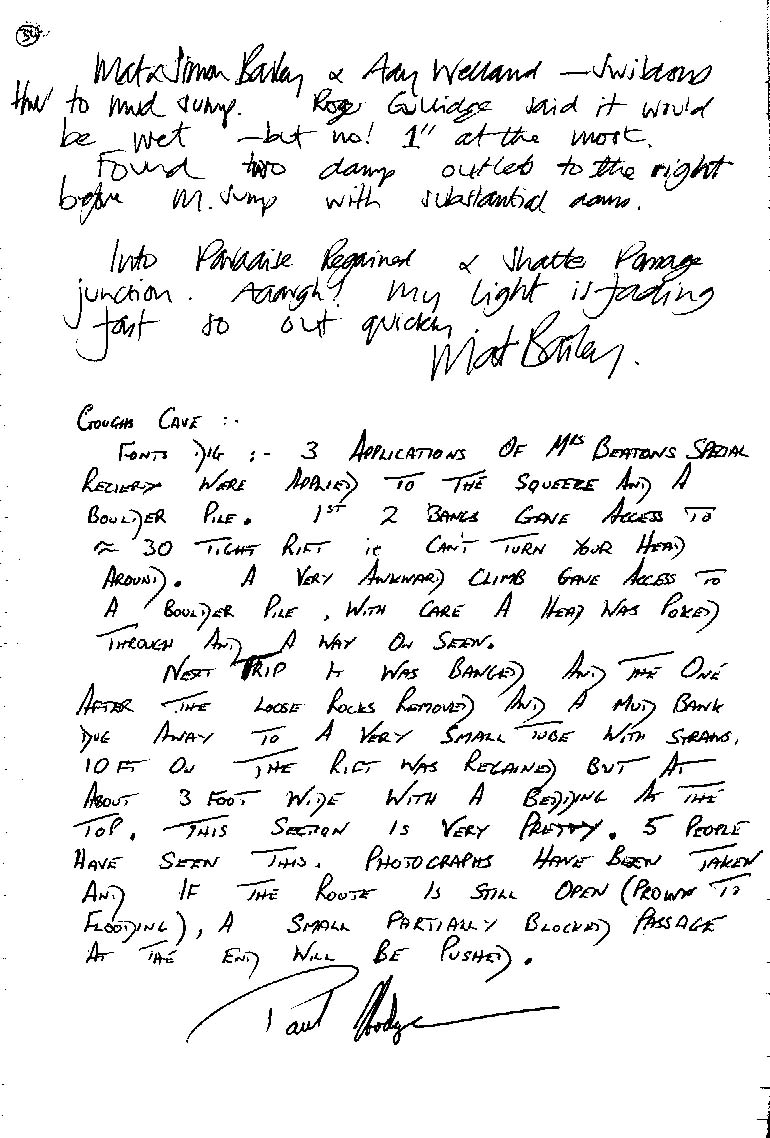 34
Mat & Simon Bailey & Ady Welland — Swildons
Hole to mud sump. Roger Gullidge said it would
be wet — but no! 1" at the most.
Found two damp outlets to the right
before M. Sump with substantial dams.
Into Paradise Regained & Shatter Passage
junction. Aaargh! My light is fading
fast so out quickly.
Mat Bailey.
GOUGHS CAVE :-
FONTS DIG :- 3 APPLICATIONS OF MRS BEATONS SPECIAL
WERE APPLIED TO THE SQUEEZE AND A
BOULDER PILE. 1ST 2 BANGS GAVE ACCESS TO
≈ 30 TIGHT RIFT ie CAN'T TURN YOUR HEAD
AROUND. A VERY AWKWARD CLIMB GAVE ACCESS TO
A BOULDER PILE, WITH CARE A HEAD WAS POKED
THROUGH AND A WAY ON SEEN.
NEXT TRIP IT WAS BANGED AND THE ONE
AFTER THE LOOSE ROCKS REMOVED AND A MUD BANK
DUG AWAY TO A VERY SMALL TUBE WITH STRAWS.
10 FT ON THE RIFT WAS REGAINED BUT AT
ABOUT 3 FOOT WIDE WITH A BEDDING AT THE
TOP. THIS SECTION IS VERY PRETTY. 5 PEOPLE
HAVE SEEN THIS. PHOTOGRAPHS HAVE BEEN TAKEN
AND IF THE ROUTE IS STILL OPEN (PROWN TO
FLOODING), A SMALL PARTIALLY BLOCKED PASSAGE
AT THE END WILL BE PUSHED.
Paul Hodge